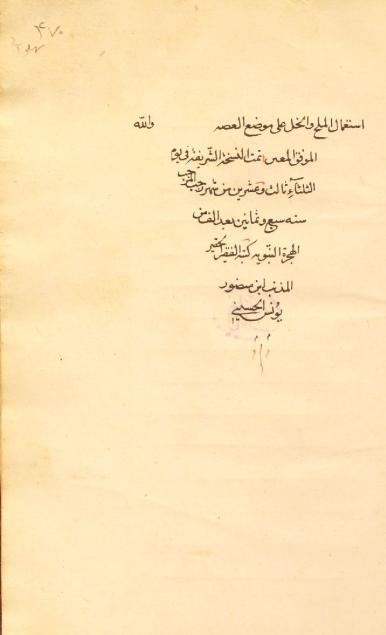 ٤٧٠
استعمال الملح والخل على موضع العصه والله
الموفق المعين تمت النسخة الشريفة في يوم
الثلثاء ثالث وعشرين من شهر رجب المرجب
سنه سبع وثمانين بعد الف من
الهجرة النبويه كتبه الفقير الحقير
المذنب ابن منصور
يونس الحسيني